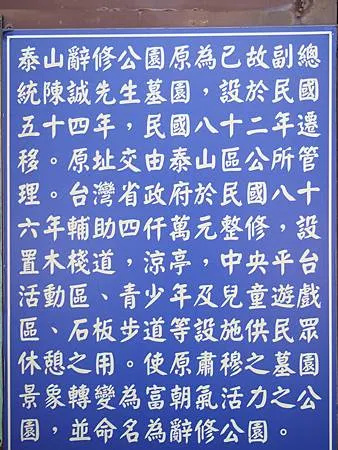 泰山辭修公園原為已故副總
統陳誠先生墓園，設於民國
五十四年，民國八十二年遷
移。原址交由泰山區公所管
理。台灣省政府於民國八十
六年輔助四仟萬元整修，設
置木棧道，涼亭，中央平台
活動區、青少年及兒童遊戲
區、石板步道等設施供民眾
休憩之用。使原肅穆之墓園
景象轉變為富朝氣活力之公
園，並命名為辭修公園。